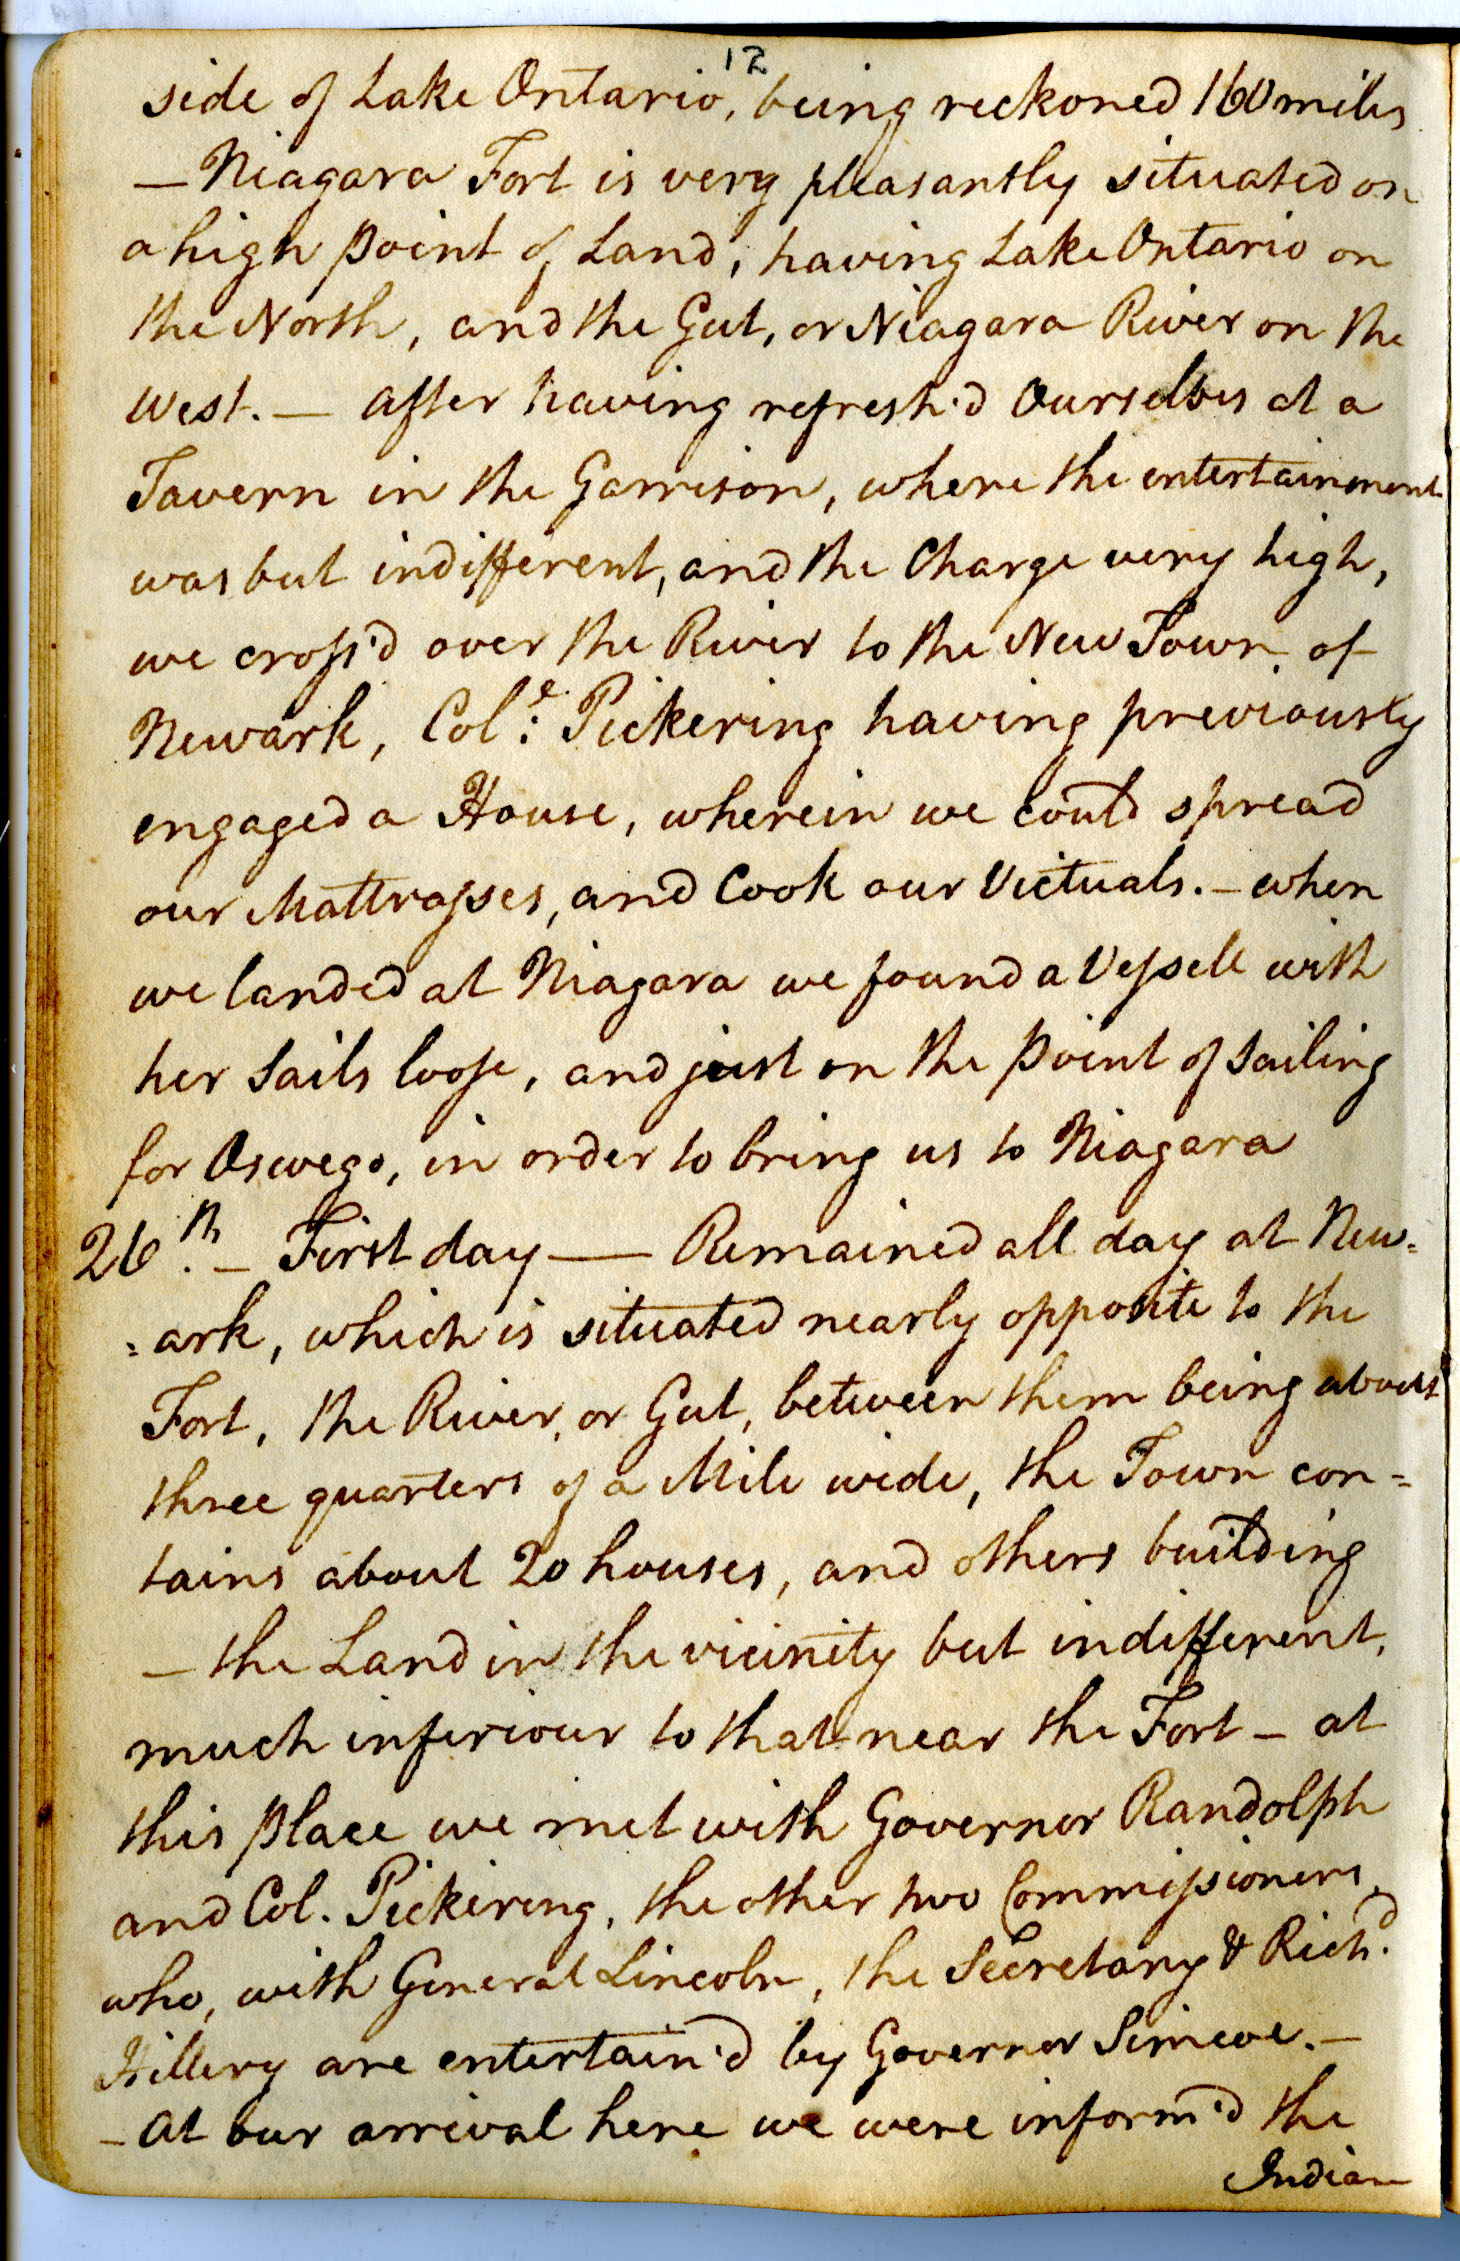 12
side of Lake Ontario, being reckoned 160 miles
— Niagara Fort is very pleasantly situated on
a high point of Land, having Lake Ontario on
the North, and the Gut, or Niagara River on the
West. — after having refresh'd Ourselves at a
Tavern in the Garrison, where the entertainment
was but indifferent, and the Charge very high,
we cross'd over the River to the New Town of
Newark, Col:e Pickering having previously
engaged a House, wherein we could spread
our Mattrasses, and Cook our Victuals. — when
we landed at Niagara we found a Vessell with
her Sails loose, and just on the point of Sailing
for Oswego, in order to bring us to Niagara
26th. — First day — Remained all day at New=
=ark, which is situated nearly opposite to the
Fort, the River, or Gut, between them being about
three quarters of a Mile wide, the Town con=
tains about 20 houses, and others building
— the Land in the vicinity but indifferent,
much inferiour to that near the Fort — at
this place we met with Governor Randolph
and Col. Pickering, the other two Commissioners,
who, with General Lincoln, the Secretary & Rich'd
Hillery are entertain'd by Governor Simcoe. —
— at our arrival here we were inform'd the
Indian